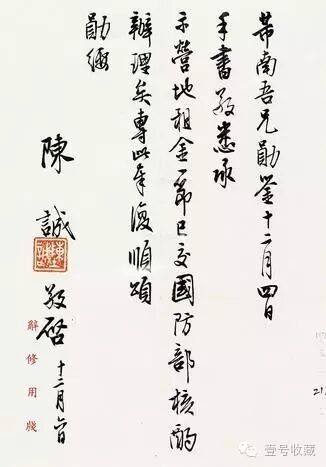 芾南吾兄勛鑒十二月四日
手書敬悉承
示營地租金一節已交國防部核酌
辦理矣專此奉復順頌
勛綏
陳誠敬啓十二月日
辭修用牋
壹号收藏